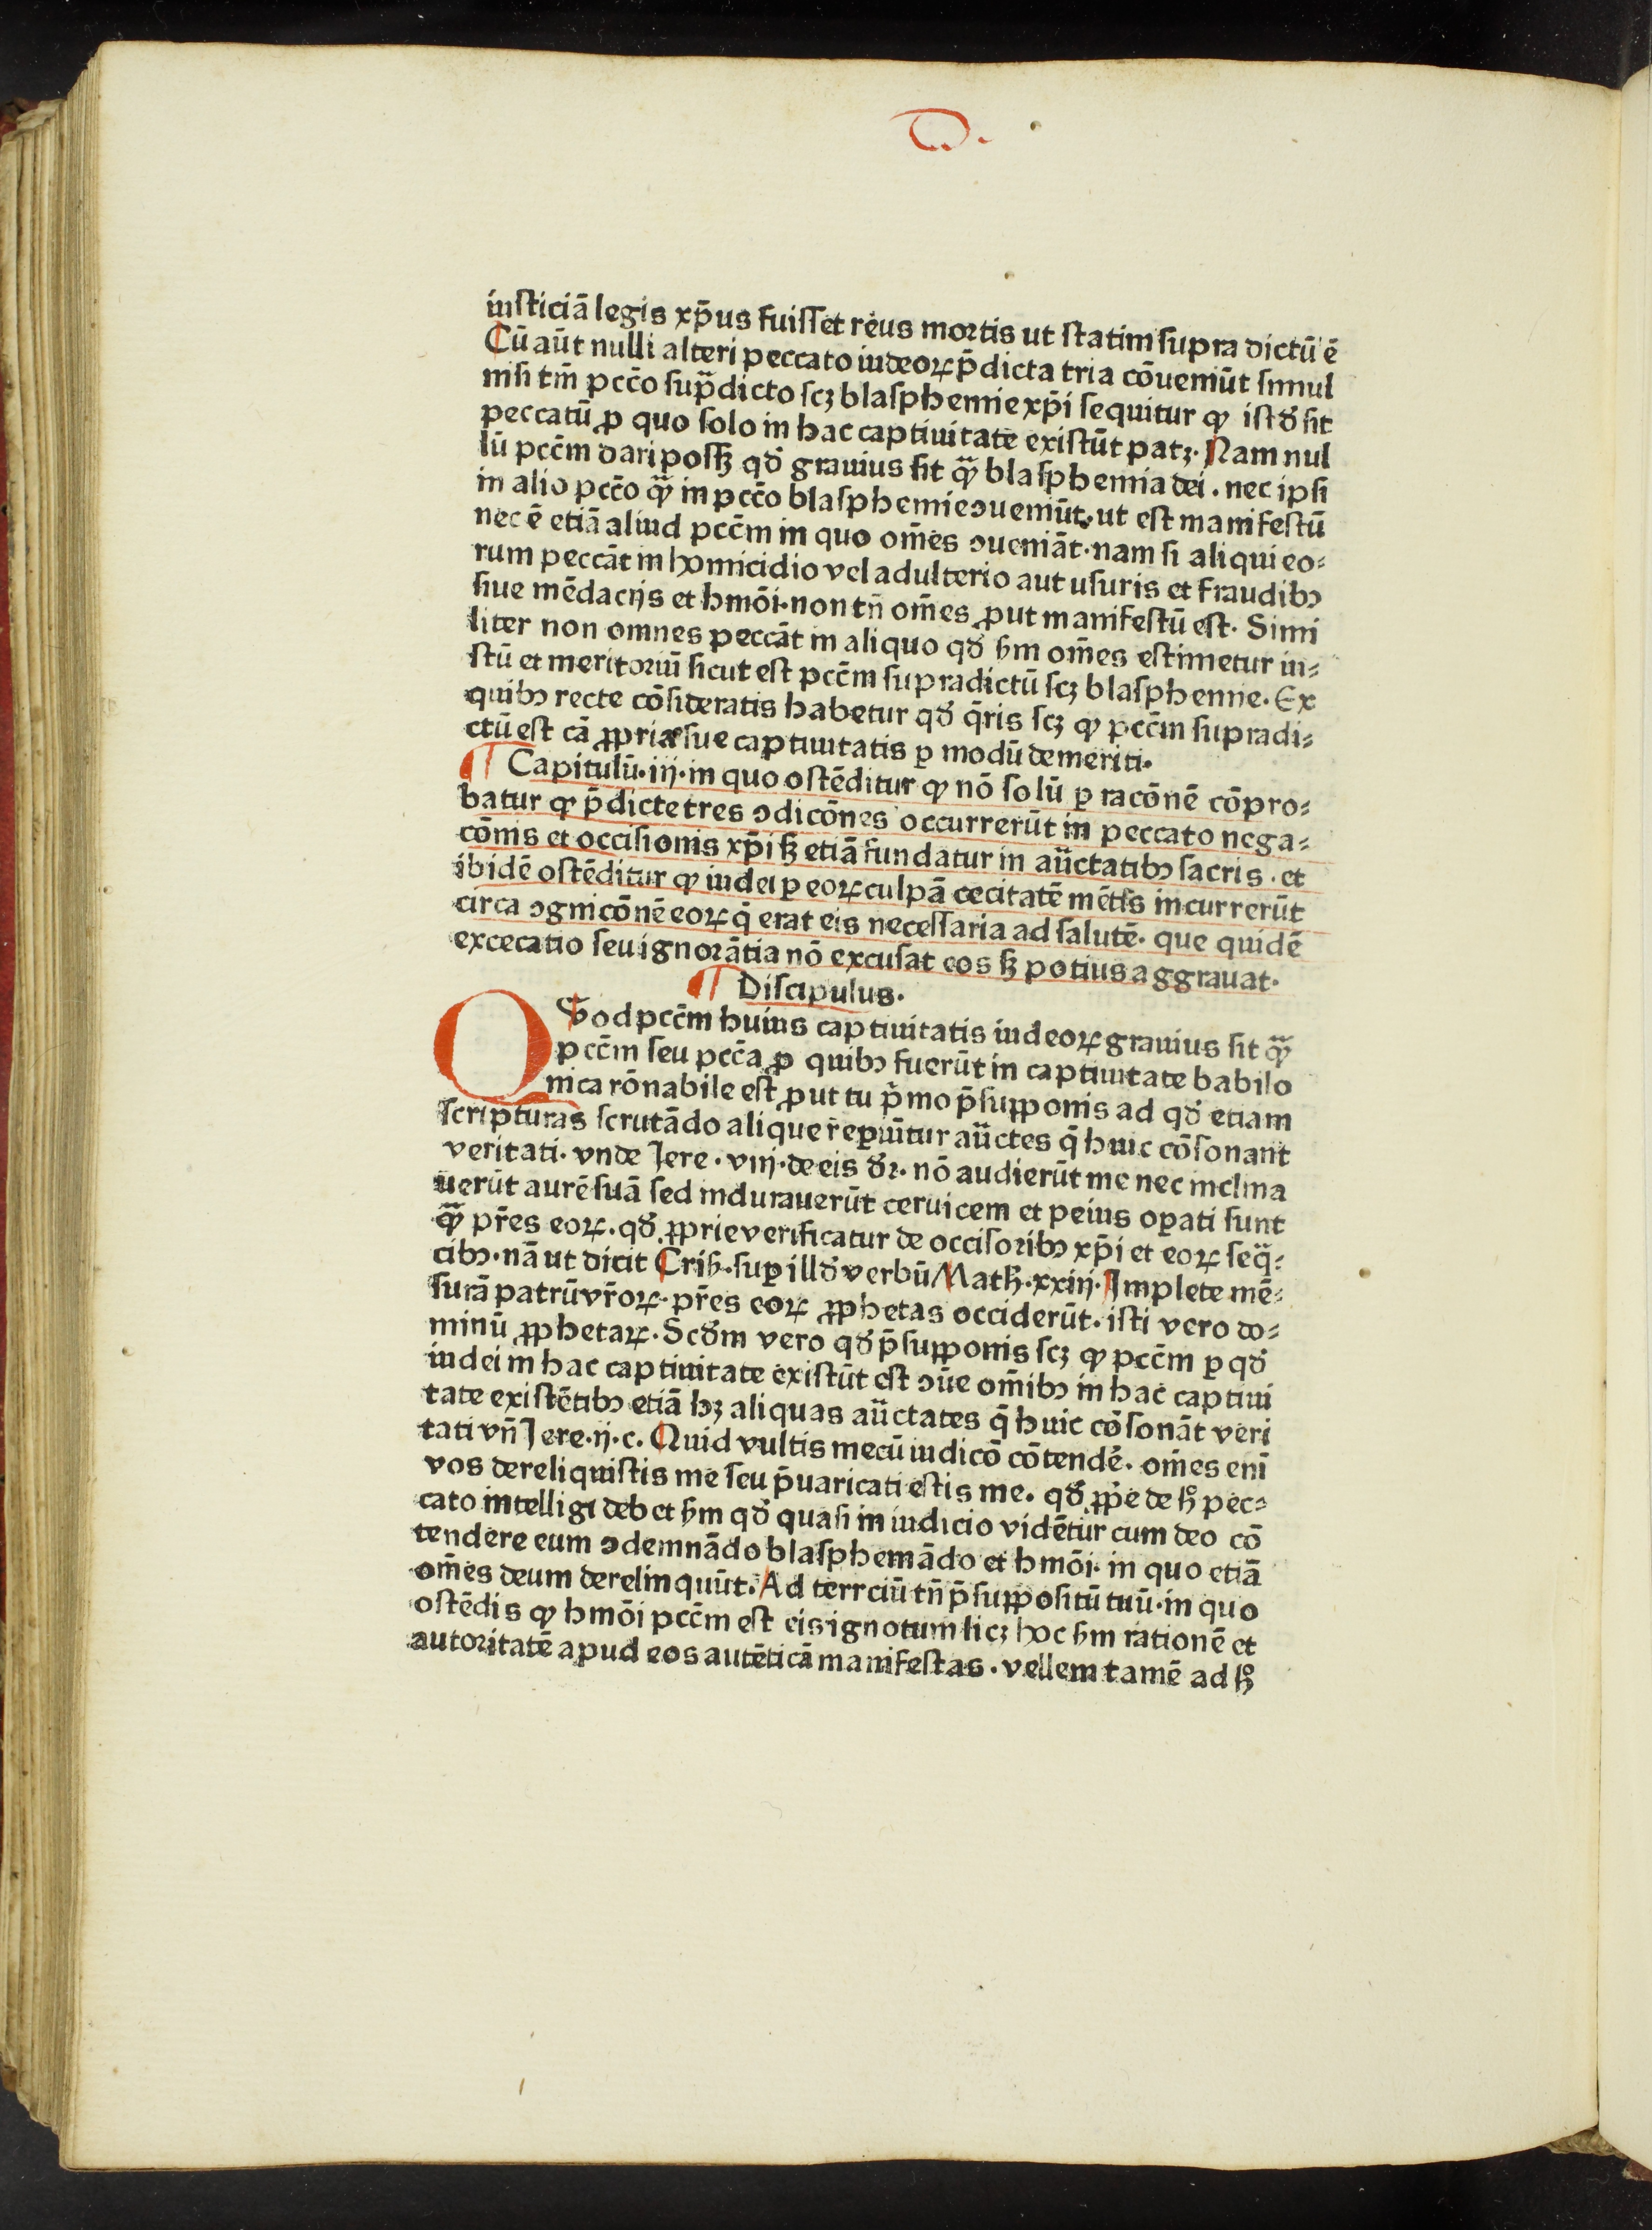 D.
iusticiā legis xp̄us fuisset reus mortis ut statim supra dictū ē
Cū aūt nulli alteri peccato iudeoꝝ p̄dicta tria cōueniūt simul
nisi tm̄ pcc̄o sup̄dicto scꝫ blasphemie xp̄i sequitur ꝙ istđ sit
peccatū ꝓ quo solo in hac captiuitate existūt patꝫ. Nam nul
lū pcc̄m dari possꝫ qđ grauius sit qͣꝫ blasphemia dei. nec ipsi
in alio pcc̄o qͣꝫ in pcc̄o blasphemie ꝯueniūt. ut est manifestū
nec ē etiā aliud pcc̄m in quo om̄es ꝯueniāt. nam si aliqui eo⸗
rum peccāt in homicidio vel adulterio aut usuris et fraudibꝯ
siue mēdacijs et hmōi. non tn̄ om̄es ꝓut manifestū est. Simi
liter non omnes peccāt in aliquo qđ ẜm om̄es estimetur iu⸗
stū et meritoriū sicut est pcc̄m supradictū scꝫ blasphemie. Ex
quibꝯ recte cōsideratis habetur qđ q̄ris scꝫ ꝙ pcc̄m supradi⸗
ctū est cā ꝓpria sue captiuitatis ꝑ modū demeriti.
¶ Capitulū. iij. in quo ostēditur ꝙ nō solū ꝑ racōnē cōpro⸗
batur ꝙ p̄dicte tres ꝯdicōnes occurrerūt in peccato nega⸗
cōnis et occisionis xp̄i sꝫ etiā fundatur in auctatibꝯ sacris. et
ibidē ostēditur ꝙ iudei ꝑ eoꝝ culpā cecitatē mētis incurrerūt
circa ꝯgnicōnē eoꝝ q̄ erat eis necessaria ad salutē. que quidē
excecatio seu ignorātia nō excusat eos sꝫ potius aggrauat.
¶ Discipulus.
QVod pcc̄m huius captiuitatis iudeoꝝ grauius sit qͣꝫ
pcc̄m seu pcc̄a ꝓ quibꝯ fuerūt in captiuitate babilo
nica rōnabile est ꝓut tu p̄mo p̄supponis ad qđ etiam
scripturas scrutādo alique reꝑiūtur auctes q̄ huic cōsonant
veritati. vnde Jere. viij. de eis đr. nō audierūt me nec inclina
uerūt aurē suā sed indurauerūt ceruicem et peius oꝑati sunt
qͣꝫ pr̄es eoꝝ. qđ ꝓprie verificatur de occisoribꝯ xp̄i et eoꝝ seq̄⸗
cibꝯ. nā ut dicit Crisͦ. suꝑ illđ verbū Math. xxiij. Implete mē⸗
surā patrū vr̄oꝝ. pr̄es eoꝝ ꝓphetas occiderūt. isti vero do⸗
minū ꝓphetaꝝ. Scđm vero qđ p̄supponis scꝫ ꝙ pcc̄m ꝑ qđ
iudei in hac captiuitate existūt est ꝯūe om̄ibꝯ in hac captiui
tate existētibꝯ etiā hꝫ aliquas auctates q̄ huic cōsonāt veri
tati vn̄ Jere. ij. c. Quid vultis mecū iudicō cōtendē. om̄es eni
vos dereliquistis me seu p̄uaricati estis me. qđ ꝓpe de hͦ pec⸗
cato intelligi debet ẜm qđ quasi in iudicio vidētur cum deo cō
tendere eum ꝯdemnādo blasphemādo et hmōi. in quo etiā
om̄es deum derelinquūt. Ad terrciū tn̄ p̄suppositū tuū. in quo
ostēdis ꝙ hmōi pcc̄m est eis ignotum licꝫ hoc ẜm rationē et
autoritatē apud eos autēticā manifestas. vellem tamē ad hͦ